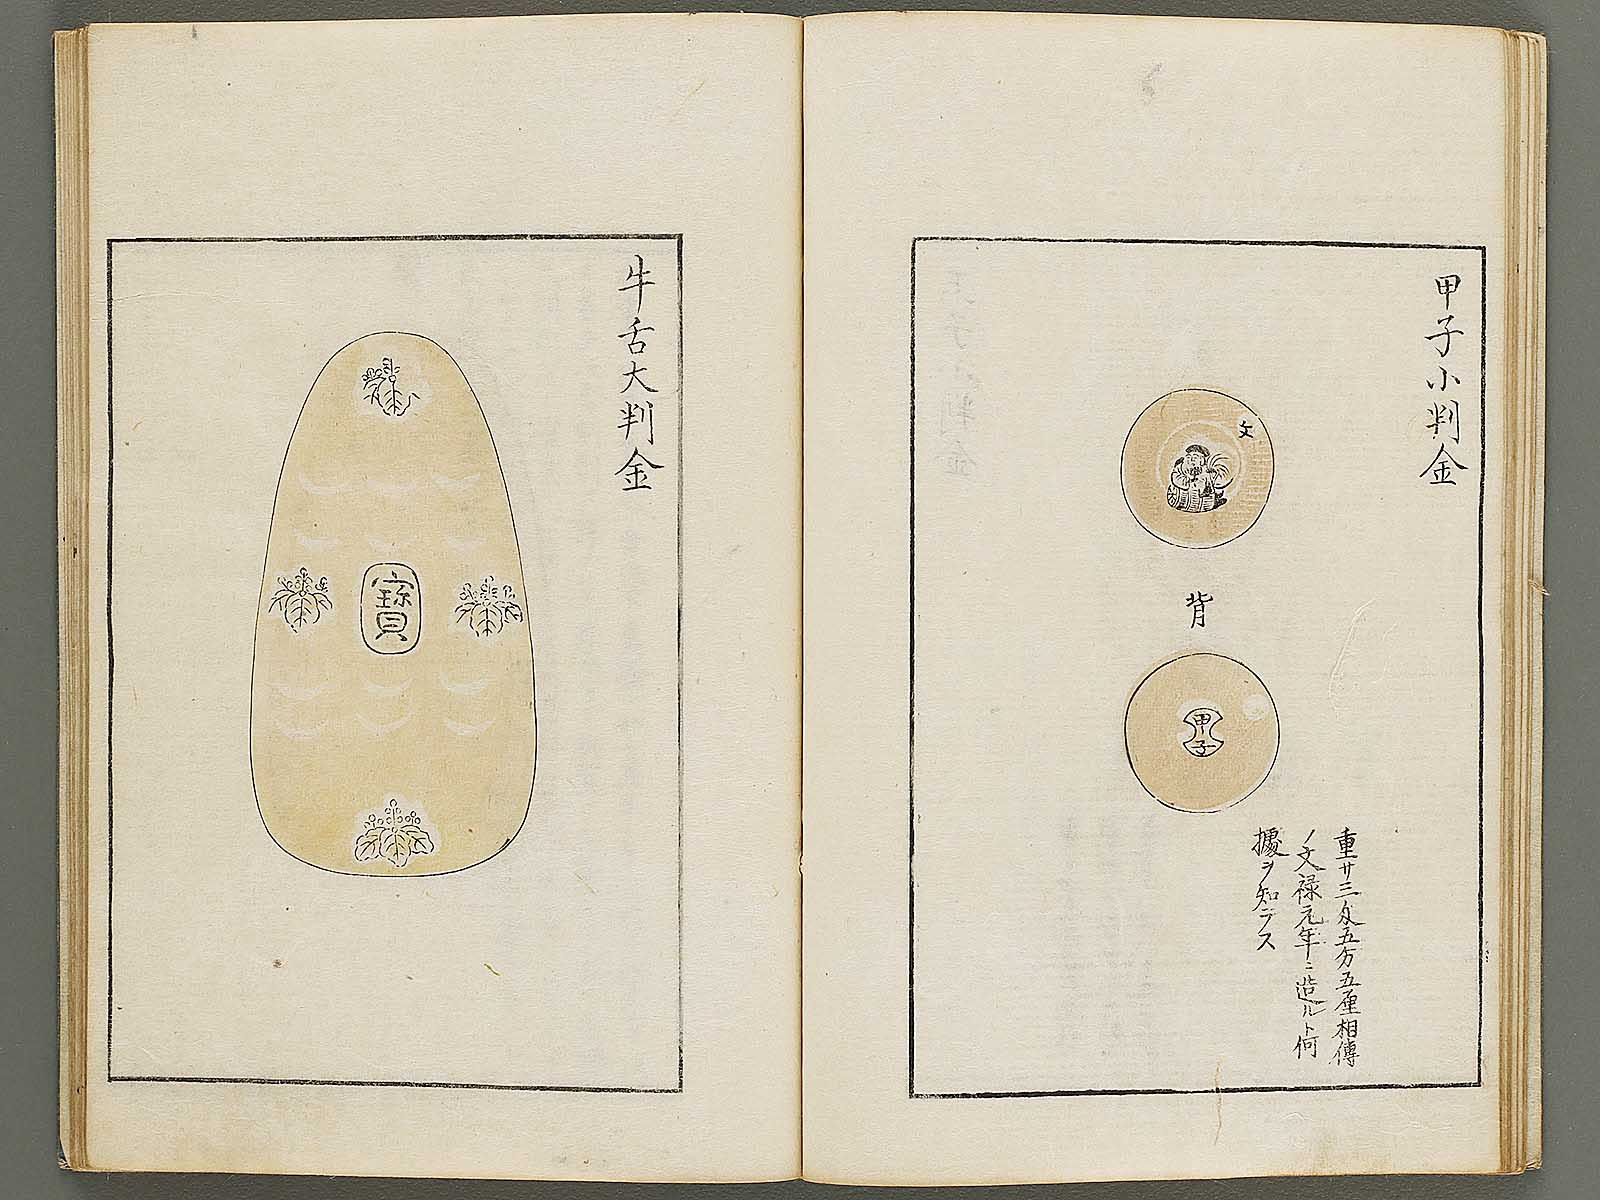 甲子小判金
文
背
甲子
重廿三匁五分五厘相傳
ノ文禄元年ニ造ルト何
據ヲ知ラス
牛舌大判金
寳